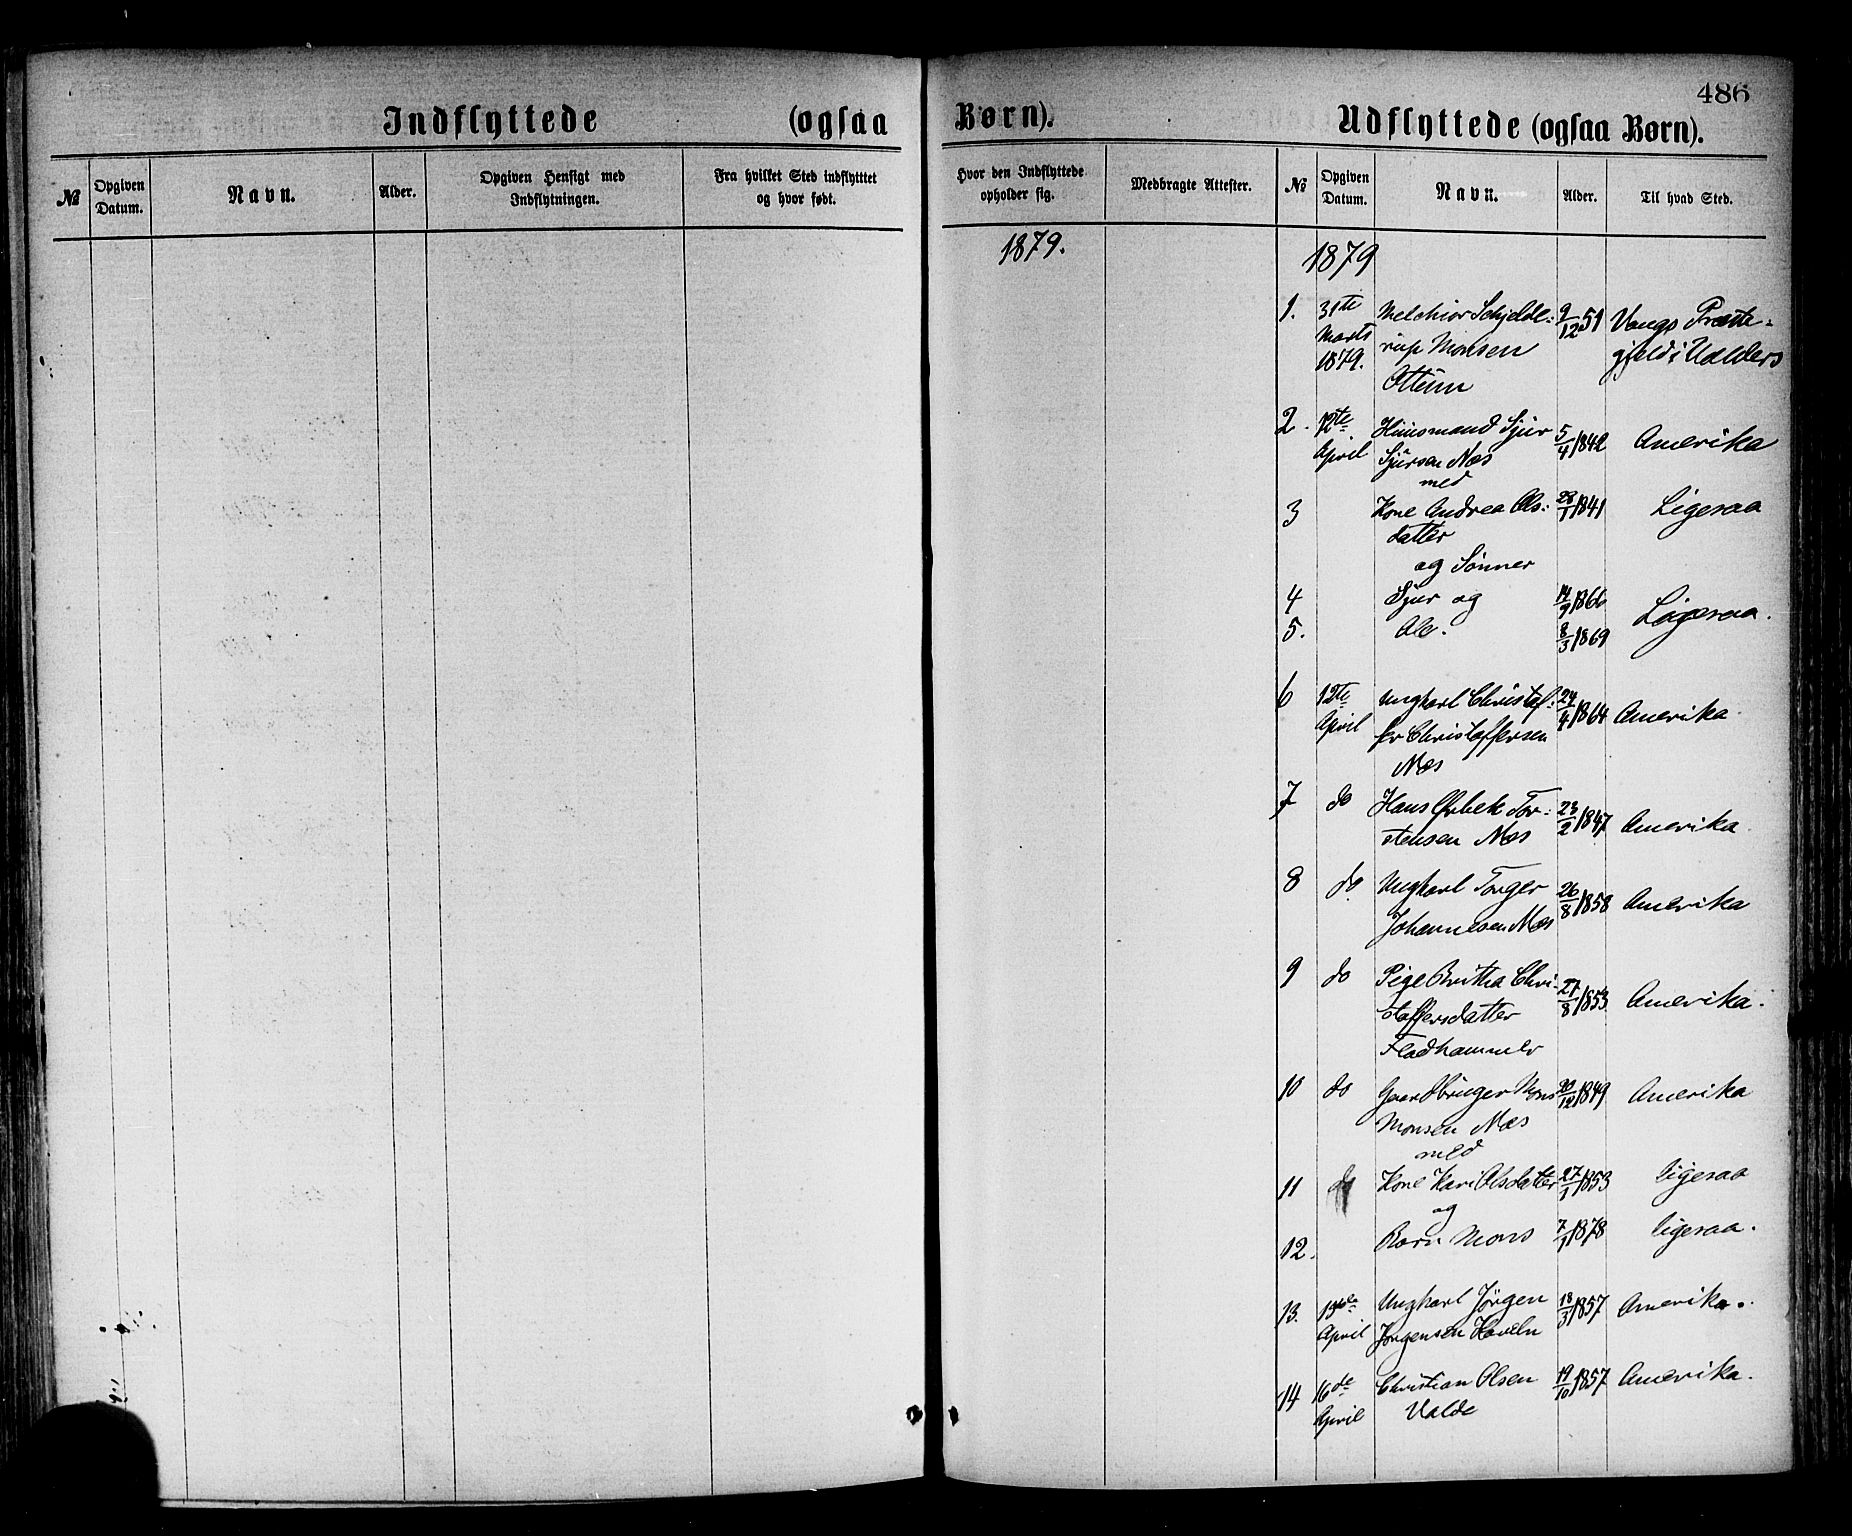 486
Indflyttede (ogsaa Børn).
Udflyttede (ogsaa Børn).
№ Opgiven Datum. Navn. Alder. Opgiven Hensigt med Indflytningen. Fra hvilket Sted indflyttet og hvor født. Hvor den Indflyttede opholder sig. Medbragte Attester.
№ Opgiven Datum. Navn. Alder. Til hvad Sted.
1879.
1879
1. 31te Melchior Schjelde- 9/12 51 Vangs Præste-
Marts rup Monsen gjeld i Valders
1879. Ottum
2. 12te Huusmand Sjur 5/4 1842 Amerika
April Sjursen Næs
med
3 Kone Andrea Ols- 28/1 1841 Ligesaa
datter
og Sønner
4 Sjur og 14/9 1866 Ligesaa.
5. Ole. 8/3 1869
6 12te Ungkarl Christof- 24/4 1864 Amerika
April fer Christoffersen
Næs
7 do Hans Ørbek Tor- 23/2 1847 Amerika.
stensen Næs
8 do Ungkarl Torger 26/8 1858 Amerika
Johannesen Næs
9 do Pige Britha Chri- 27/8 1853 Amerika.
stoffersdatter
Fladhammer
10 do Gaardbruger Mons 20/12 1849 Amerika
Monsen Næs
med
11 do Kone Kari Olsdatter 27/1 1853 ligesaa
og
12. Barn Mons 7/1 1878 ligesaa.
13. Ungkarl Jörgen 18/3 1857 Amerika.
April Jörgensen
14 16de Christian Olsen 19/10 1857 Amerika.
April Valde